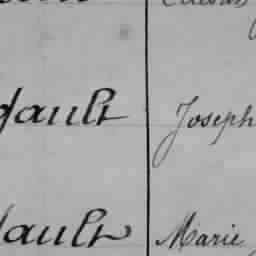 gault Joseph
ault Marie